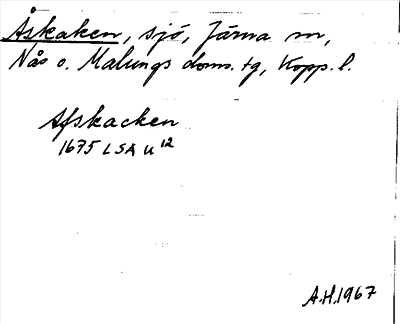 Åskaken, sjö, Järna sn,
Nås o. Malungs doms. tg, Kopp. l.
Afskacken
1675 LSA U 12
A.H. 1967